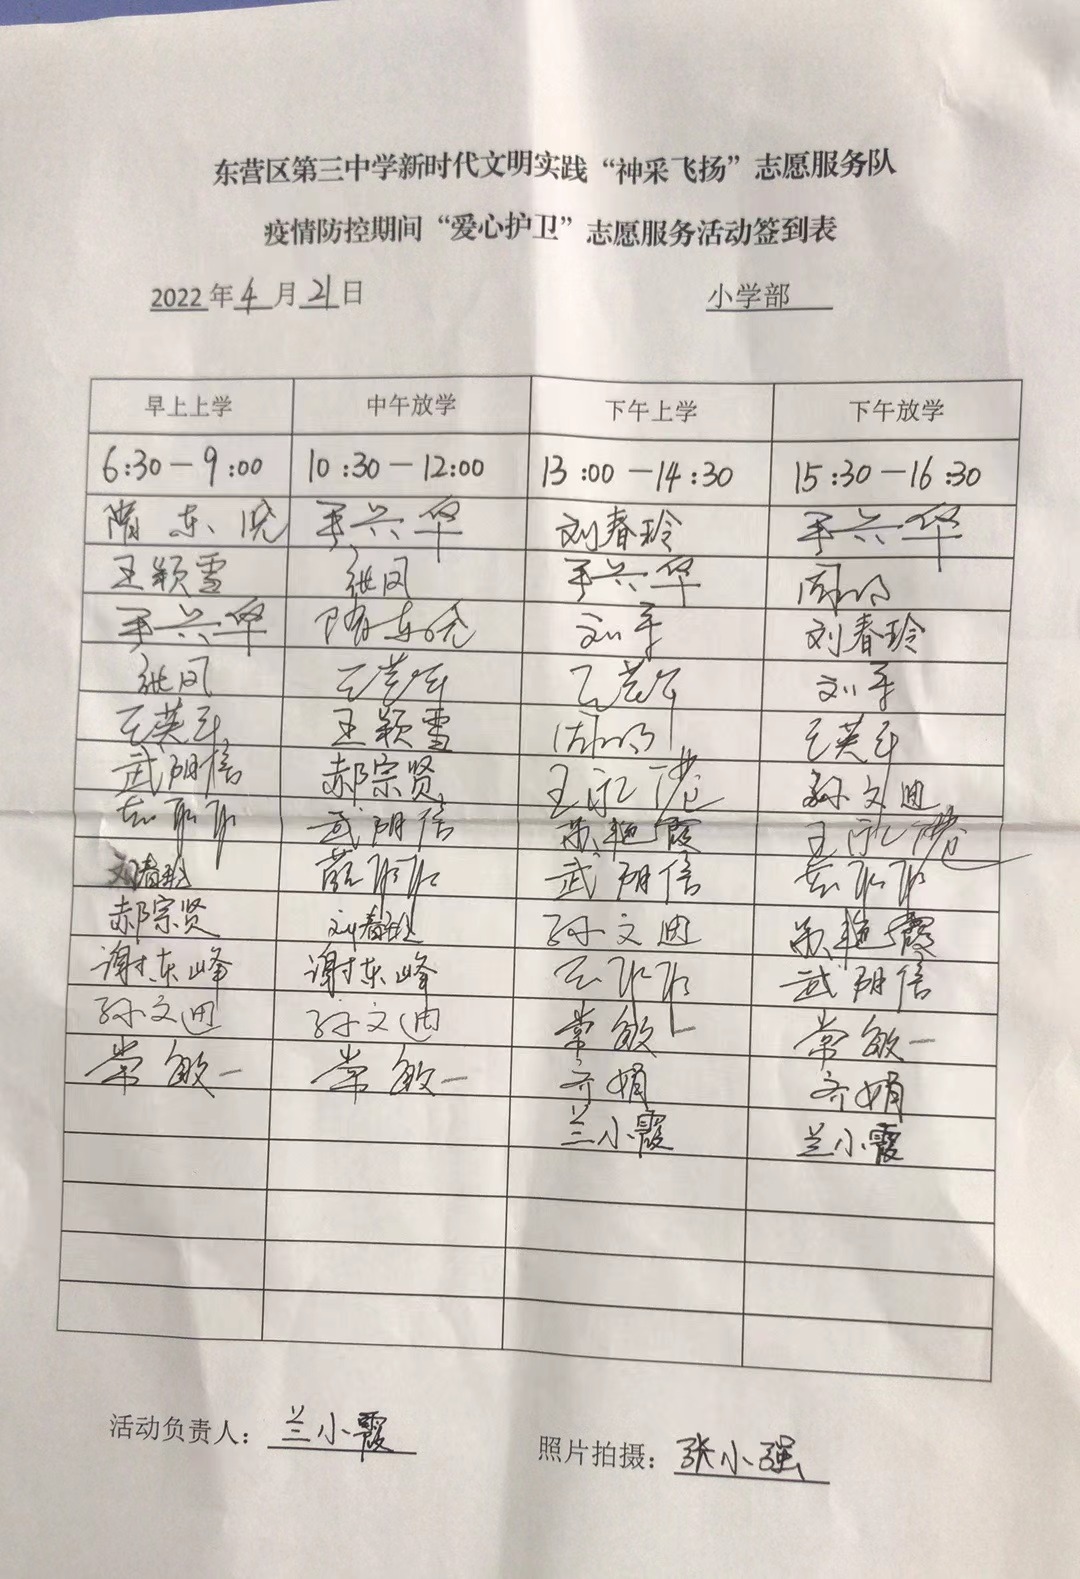 东营区第三中学新时代文明实践“神采飞扬”志愿服务队
疫情防控期间“爱心护卫”志愿服务活动签到表
2022年4月21日 小学部
早上上学 中午放学 下午上学 下午放学
6:30-9:00 10:30-12:00 13:00-14:30 15:30-16:30
隋东悦 李兴华 刘春玲 李兴华
王颖雪 张风 李兴华
李兴华 隋东悦 刘军 刘春玲
张风 刘军
王英军 王颖雪 王英军
武阴信 郝宗贤 王永港 孙文迪
武阴信 苏艳霞 王永港
刘春玲 武阴信
郝宗贤 刘春玲 孙文迪 苏艳霞
谢东峰 谢东峰 武阴信
孙文迪 孙文迪 常敏 常敏
常敏 常敏 齐娟 齐娟
兰小霞 兰小霞
活动负责人：兰小霞 照片拍摄：张小强